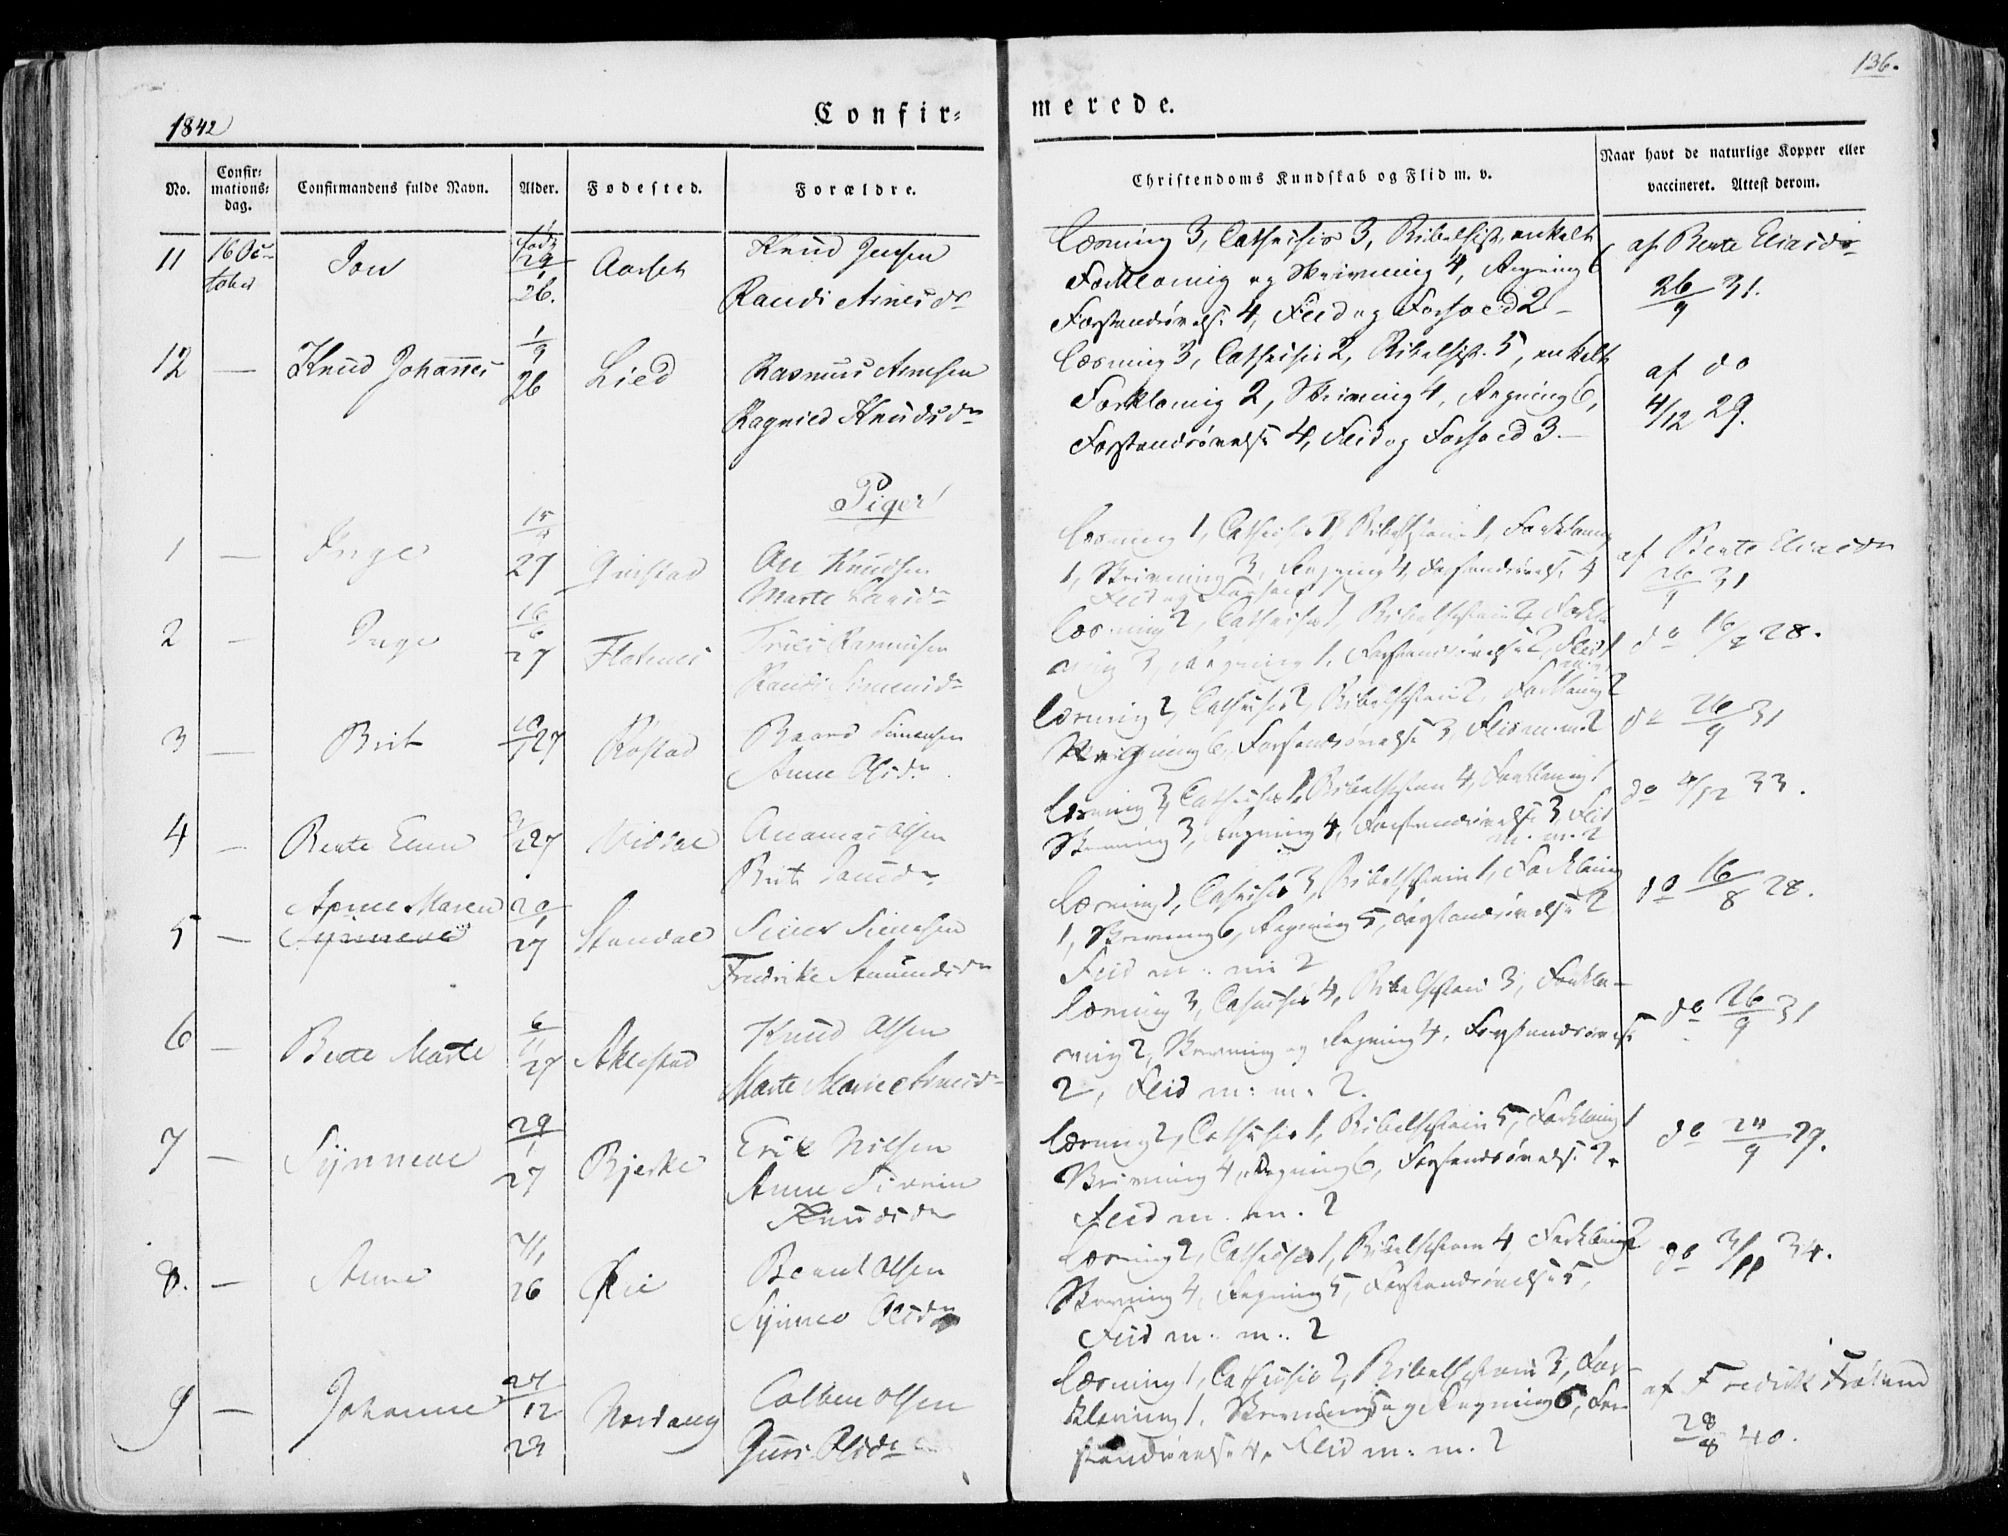 136.
1842
Confir-
merede.
No.
Confir-
mations-
dag.
Confirmandens fulde Navn.
Alder.
Fødested.
Forældre.
Christendoms Kundskab og Flid m. v.
Naar havt de naturlige Kopper eller
vaccineret. Attest derom.
11 16 Oc-
tober Jon født 29/1 26. Aarset Knud Jensen
Randi Arnesdr
Læsning 3, Cathechis 3, Bibelhist. enkelt
Forklaring og Skrivning 4, Regning 6
Forstandsøvelse 4, Flid og Forhold 2 -
af Berte Eliasdr
26/9 31.
12 — Knud Johannes 1/9 26 Lied Rasmus Arnesen
Ragnild Knudsdr
Læsning 3, Cathechis 2, Bibelhist. 5, enkelt
Forklaring 2, Skrivning 4, Regning 6,
Forstandsøvelse 4, Flid og Forhold 3. —
af do
4/12 29.
Piger
1 — Inger 27 Ole Knudsen
Marte Larsdr
Læsning 1, Cathechis 1, Bibelhistorie 1, Forklaring
1, Skrivning 3, Regning 4, Forstandsøvelse 4
Flid og Forhold
af Berte Eliasdr
26/9 31
2 — Inger 16/6 27 Flatnes Rasmusen
Randi Simensdr
Læsning 2, Cathechis 1, Bibelhistorie 2, Forkla-
ring 3, Regning 1, Forstandsøvelse 2, Flid
do 16/8 28.
3 — Brit 27 Røstad Baard Simensen
Anne Olsdr.
Læsning 2, Cathechis 2, Bibelhistorie 2, Forklaring 2
Regning 6, Forstandsøvelse 3, Flid m. m. 2
do 26/9 31
4 — Berte 27 Viddal Ananias Olsen
Brit
Læsning 3, Cathechis 1, Bibelhistorie 4, Forklaring 1
Skrivning 3, Regning 4, Forstandsøvelse 3, Flid
m. m. 2
do 4/12 33.
5 — Anne Maren
Synneve 29/1 27 Standal Siver Siversen
Fredrike Amundsdr
Læsning 1, Cathechis 3, Bibelhistorie 1, Forklaring
1, Skrivning 6, Regning 5, Forstandsøvelse 2
Flid m. m. 2
do 16/8 28.
6 — Berte Marte 6/11 27 Aklestad Knud Olsen
Marte Marie Arnesdr
Læsning 3, Cathechis 4, Bibelhistorie 3, Forkla-
ring 2, Skrivning og Regning 4, Forstandsøvelse
2, Flid m: m. 2.
do 26/9 31
7 — Synneve 29/1 27 Bjerke Erik Nilsen
Anne Severine
Knudsdr
Læsning 2, Cathechis 1, Bibelhistorie 5, Forklaring 1
Skrivning 4, Regning 6, Forstandsøvelse 2.
Flid m. m. 2
do 24/9 29.
8. — Anne 26 Øie Bernt Olsen
Synnev Olsdr
Læsning 2, Cathechis 1, Bibelhistorie 4, Forklaring 2
Skrivning 4, Regning 5, Forstandsøvelse 5,
Flid m. m. 2
do 3/11 34.
9 — Johanne 27/12 23 Nordang Colben Olsen
Guri Olsdr
Læsning 1, Cathechis 2, Bibelhistorie 3, For-
klaring 1, Skrivning og Regning 6, For-
standsøvelse 4, Flid m: m. 2
af Fredrik Frøland
28/8 40.